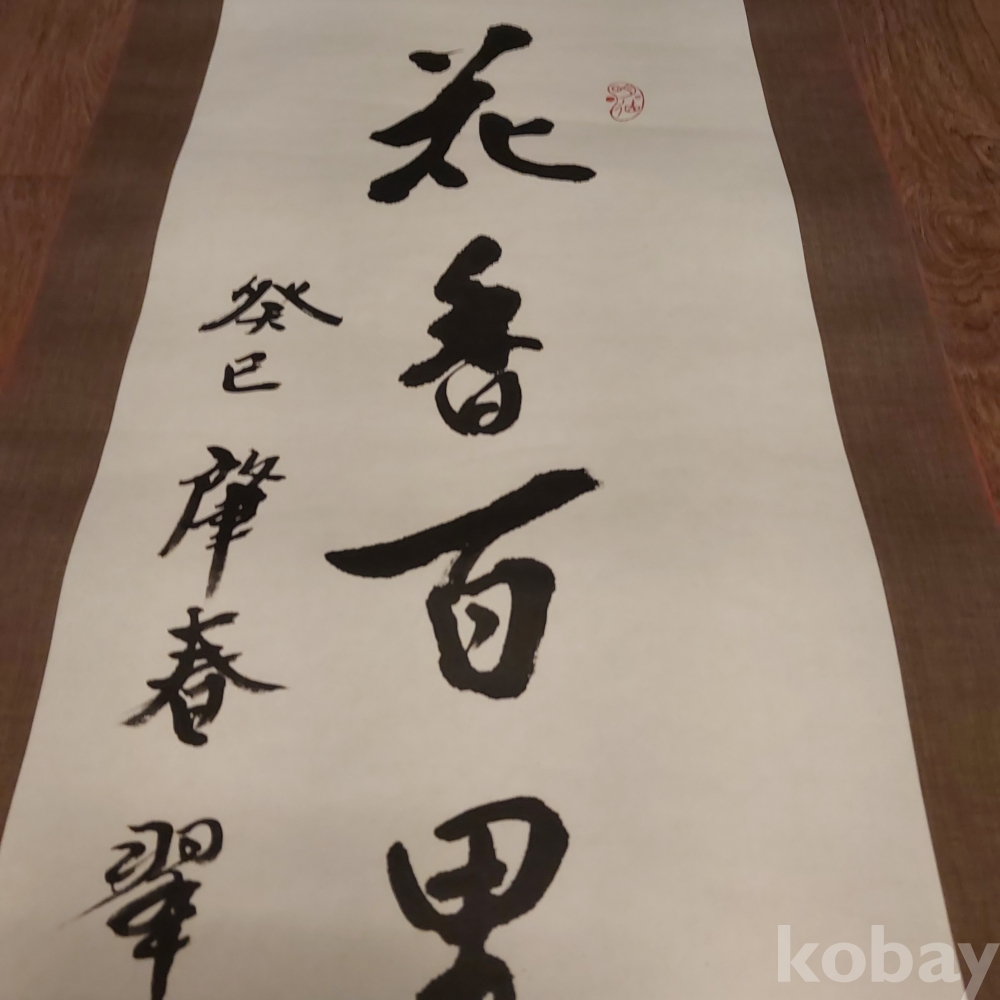 花香百里
癸巳肇春翠
kobay